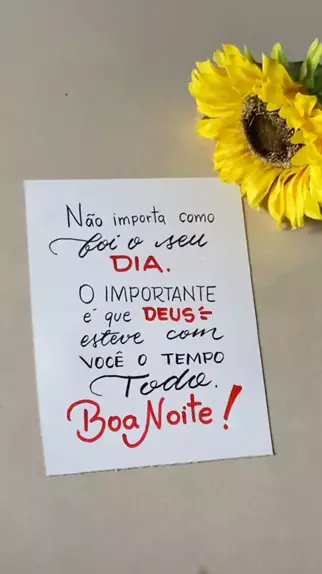 Não importa como
foi o seu
DIA.
O IMPORTANTE
é que DEUS
esteve com
VOCÊ O TEMPO
Todo.
Boa Noite!